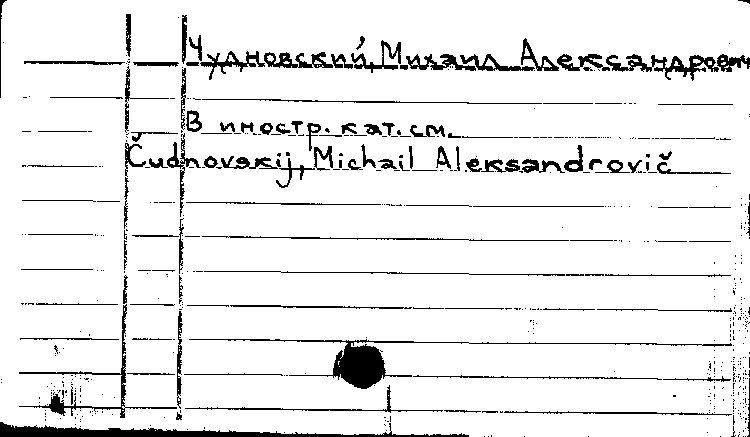 Чудновский, Михаил Александрович
В иностр. кат. см.
Čudnovskij, Michail Aleksandrovič